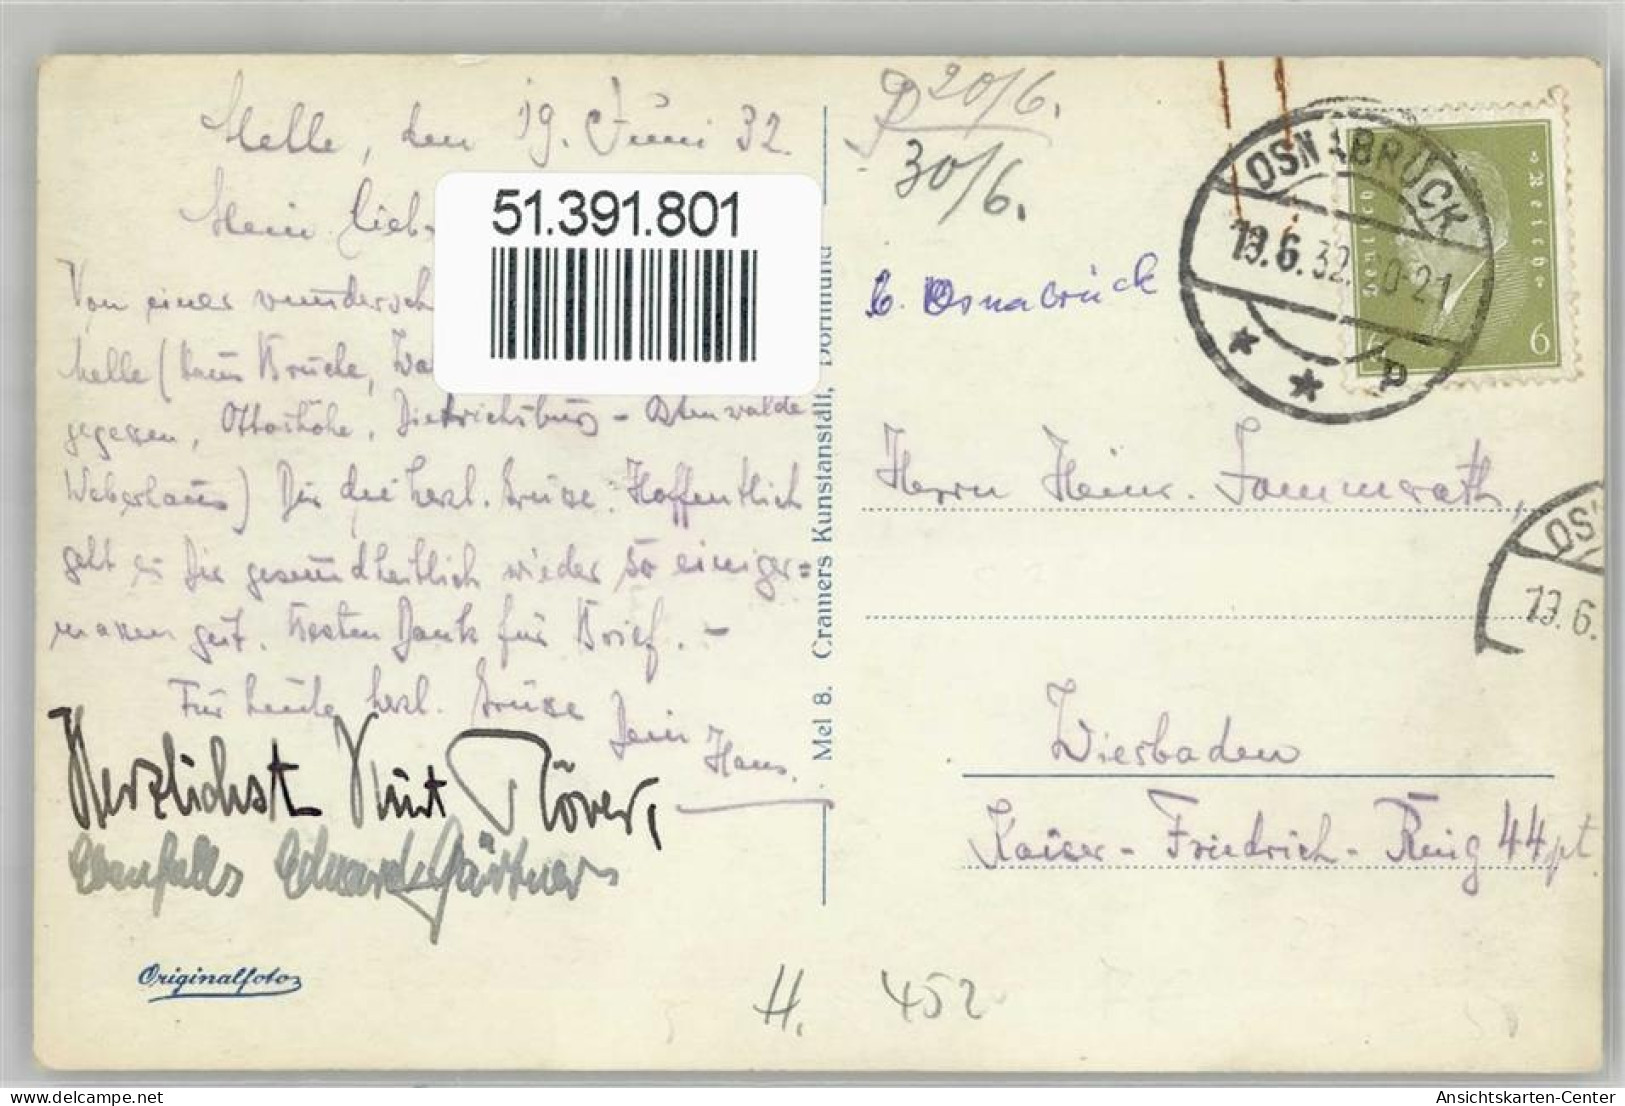 Melle, den 19. Juni 32
Mein lieb
Von einer wundersch
Melle (Haus Brucke, Wa
gegessen, Ottoshöhe, Dietrichsburg - Ostenwalde
Weberhaus) Dir die herzl. Grüsse. Hoffentlich
geht es Dir gesundheitlich wieder so einiger=
massen gut. Besten Dank für Brief. -
Für heute herzl. Grüsse
Dein Hans.
Herzlichst Kurt Röver,
Ebenfalls Eduard Gärtner
Originalfoto
51.391.801
Mel 8. Cramers Kunstanstalt, Dortmund
20/6.
30/6.
b. Osnabrück
OSNABRÜCK
19.6.32. 20-21
* * P
Deutsches Reich
6 6
Herrn Heinr. Sommerath,
OSN
19.6.
Wiesbaden
Kaiser-Friedrich-Ring 44 pt
H. 452
Ansichtskarten-Center
delcampe.net